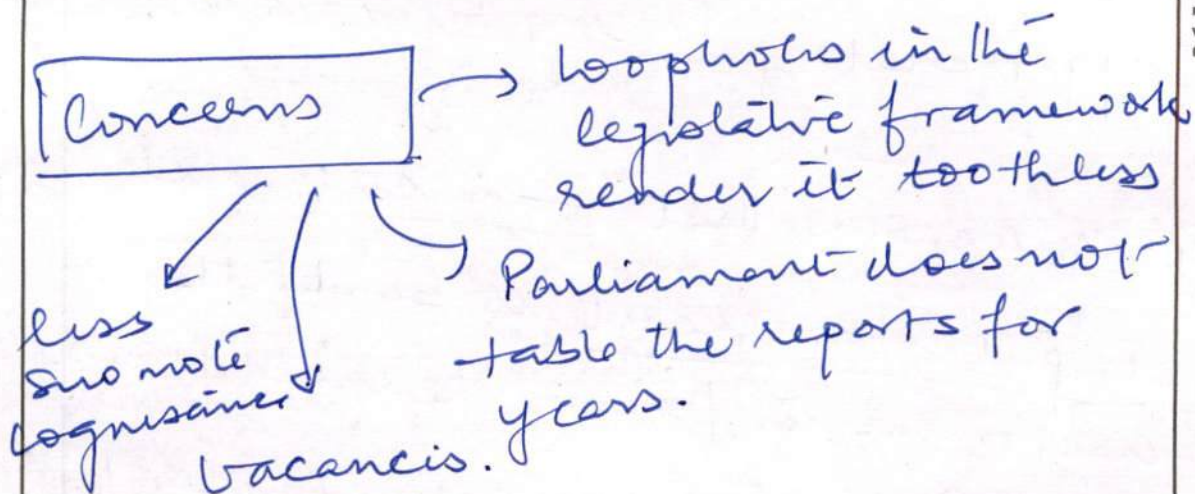 Concerns
loopholes in the
legislative framework
render it toothless
Parliament does not
table the reports for
years.
less
suo moté
cognisance
vacancis.